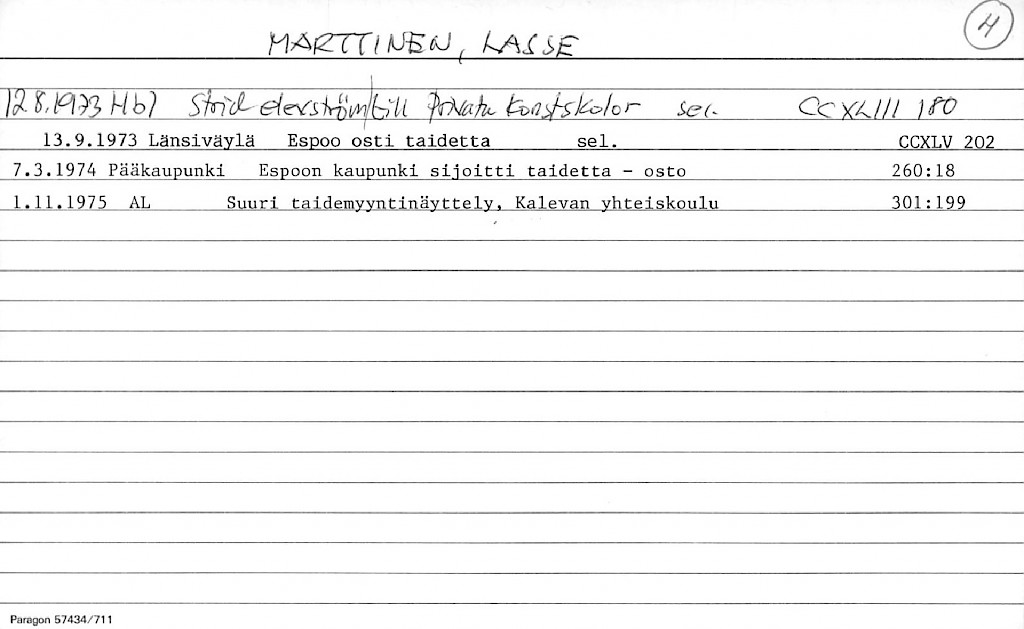 4
MARTTINEN, LASSE
12.8.1973 Hbl Strid elevström/till Privata Konstskolor sel. CCXLIII 180
13.9.1973 Länsiväylä Espoo osti taidetta sel. CCXLV 202
7.3.1974 Pääkaupunki Espoon kaupunki sijoitti taidetta - osto 260:18
1.11.1975 AL Suuri taidemyyntinäyttely, Kalevan yhteiskoulu 301:199
Paragon 57434/711